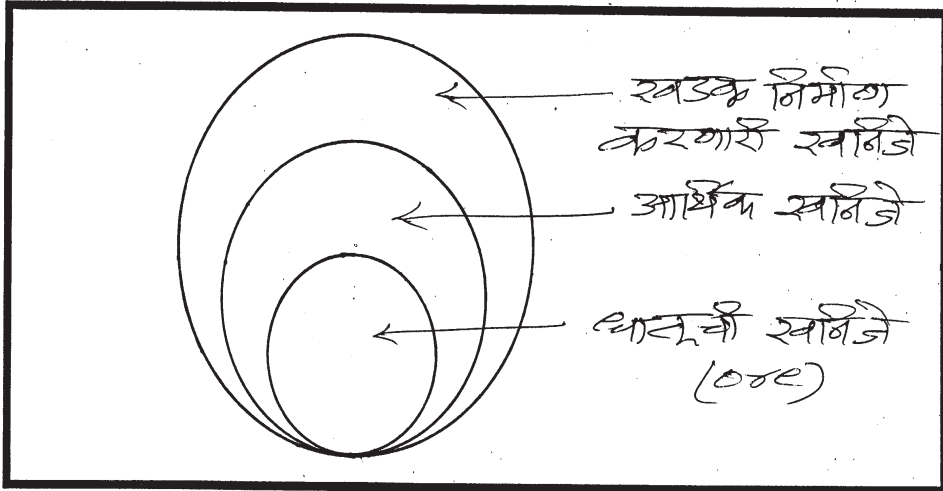 खडक निर्माण
करणारी खनिजे
आर्थिक खनिजे
धातूची खनिजे
(ore)